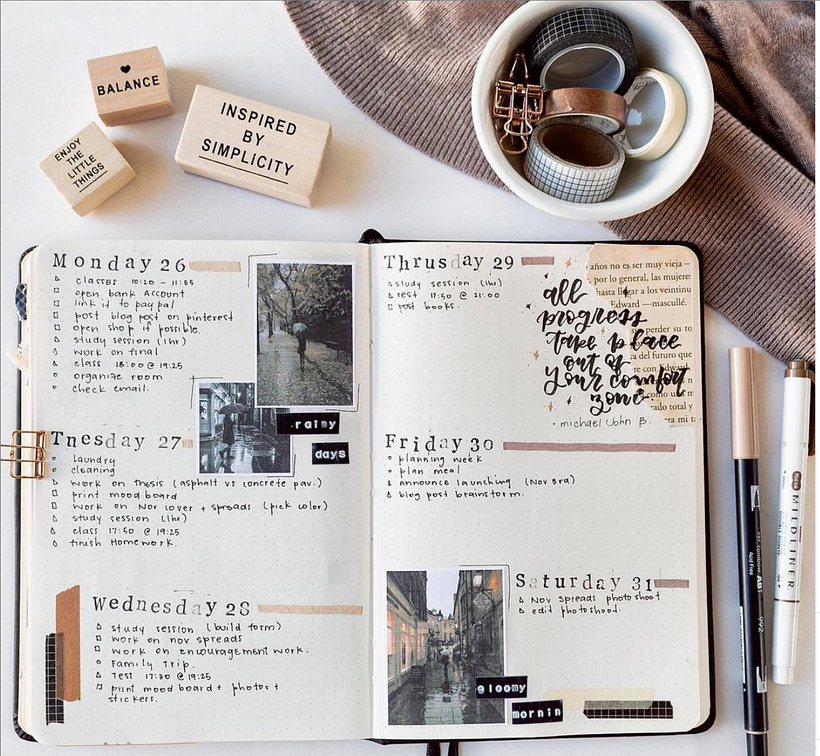 BALANCE
INSPIRED
BY
SIMPLICITY
ENJOY
THE
LITTLE
THINGS
Monday 26
classes 10:20 - 11:55
open bank Account
link it to paypal
post blog post on pinterest
open shop if possible.
study session (1hr)
work on final
class 18:00 @ 19:25
organize room
check email.
rainy
days
Tnesday 27
laundry
cleaning
work on thesis (asphalt vs concrete pav.)
print mood board
work on Nov cover + spreads (pick color)
study session (1hr)
class 17:50 @ 19:25
finish Homework.
Wednesday 28
study session (build form)
work on nov. spreads
work on encouragement work.
Family Trip.
Test 17:30 @ 19:25
print mood board + photos +
stickers.
Thrusday 29
study session (1hr)
Test 17:50 @ 21:00
post books.
all
progress
take place
out of
your comfort
zone.
- michael John B.
años no es ser muy vieja —
, por lo general, las mujere
hasta llegar a los veintinu
Edward —masculló.
perder su to
da del futuro que
con Edward
como un m
rado total y
mi
Friday 30
planning week
plan meal
announce launching (Nov 3rd)
blog post brainstorm.
Saturday 31
Nov spreads photoshoot
edit photoshoot.
gloomy
mornin
Tombow ABT
992
Acid Free
MILDLINER